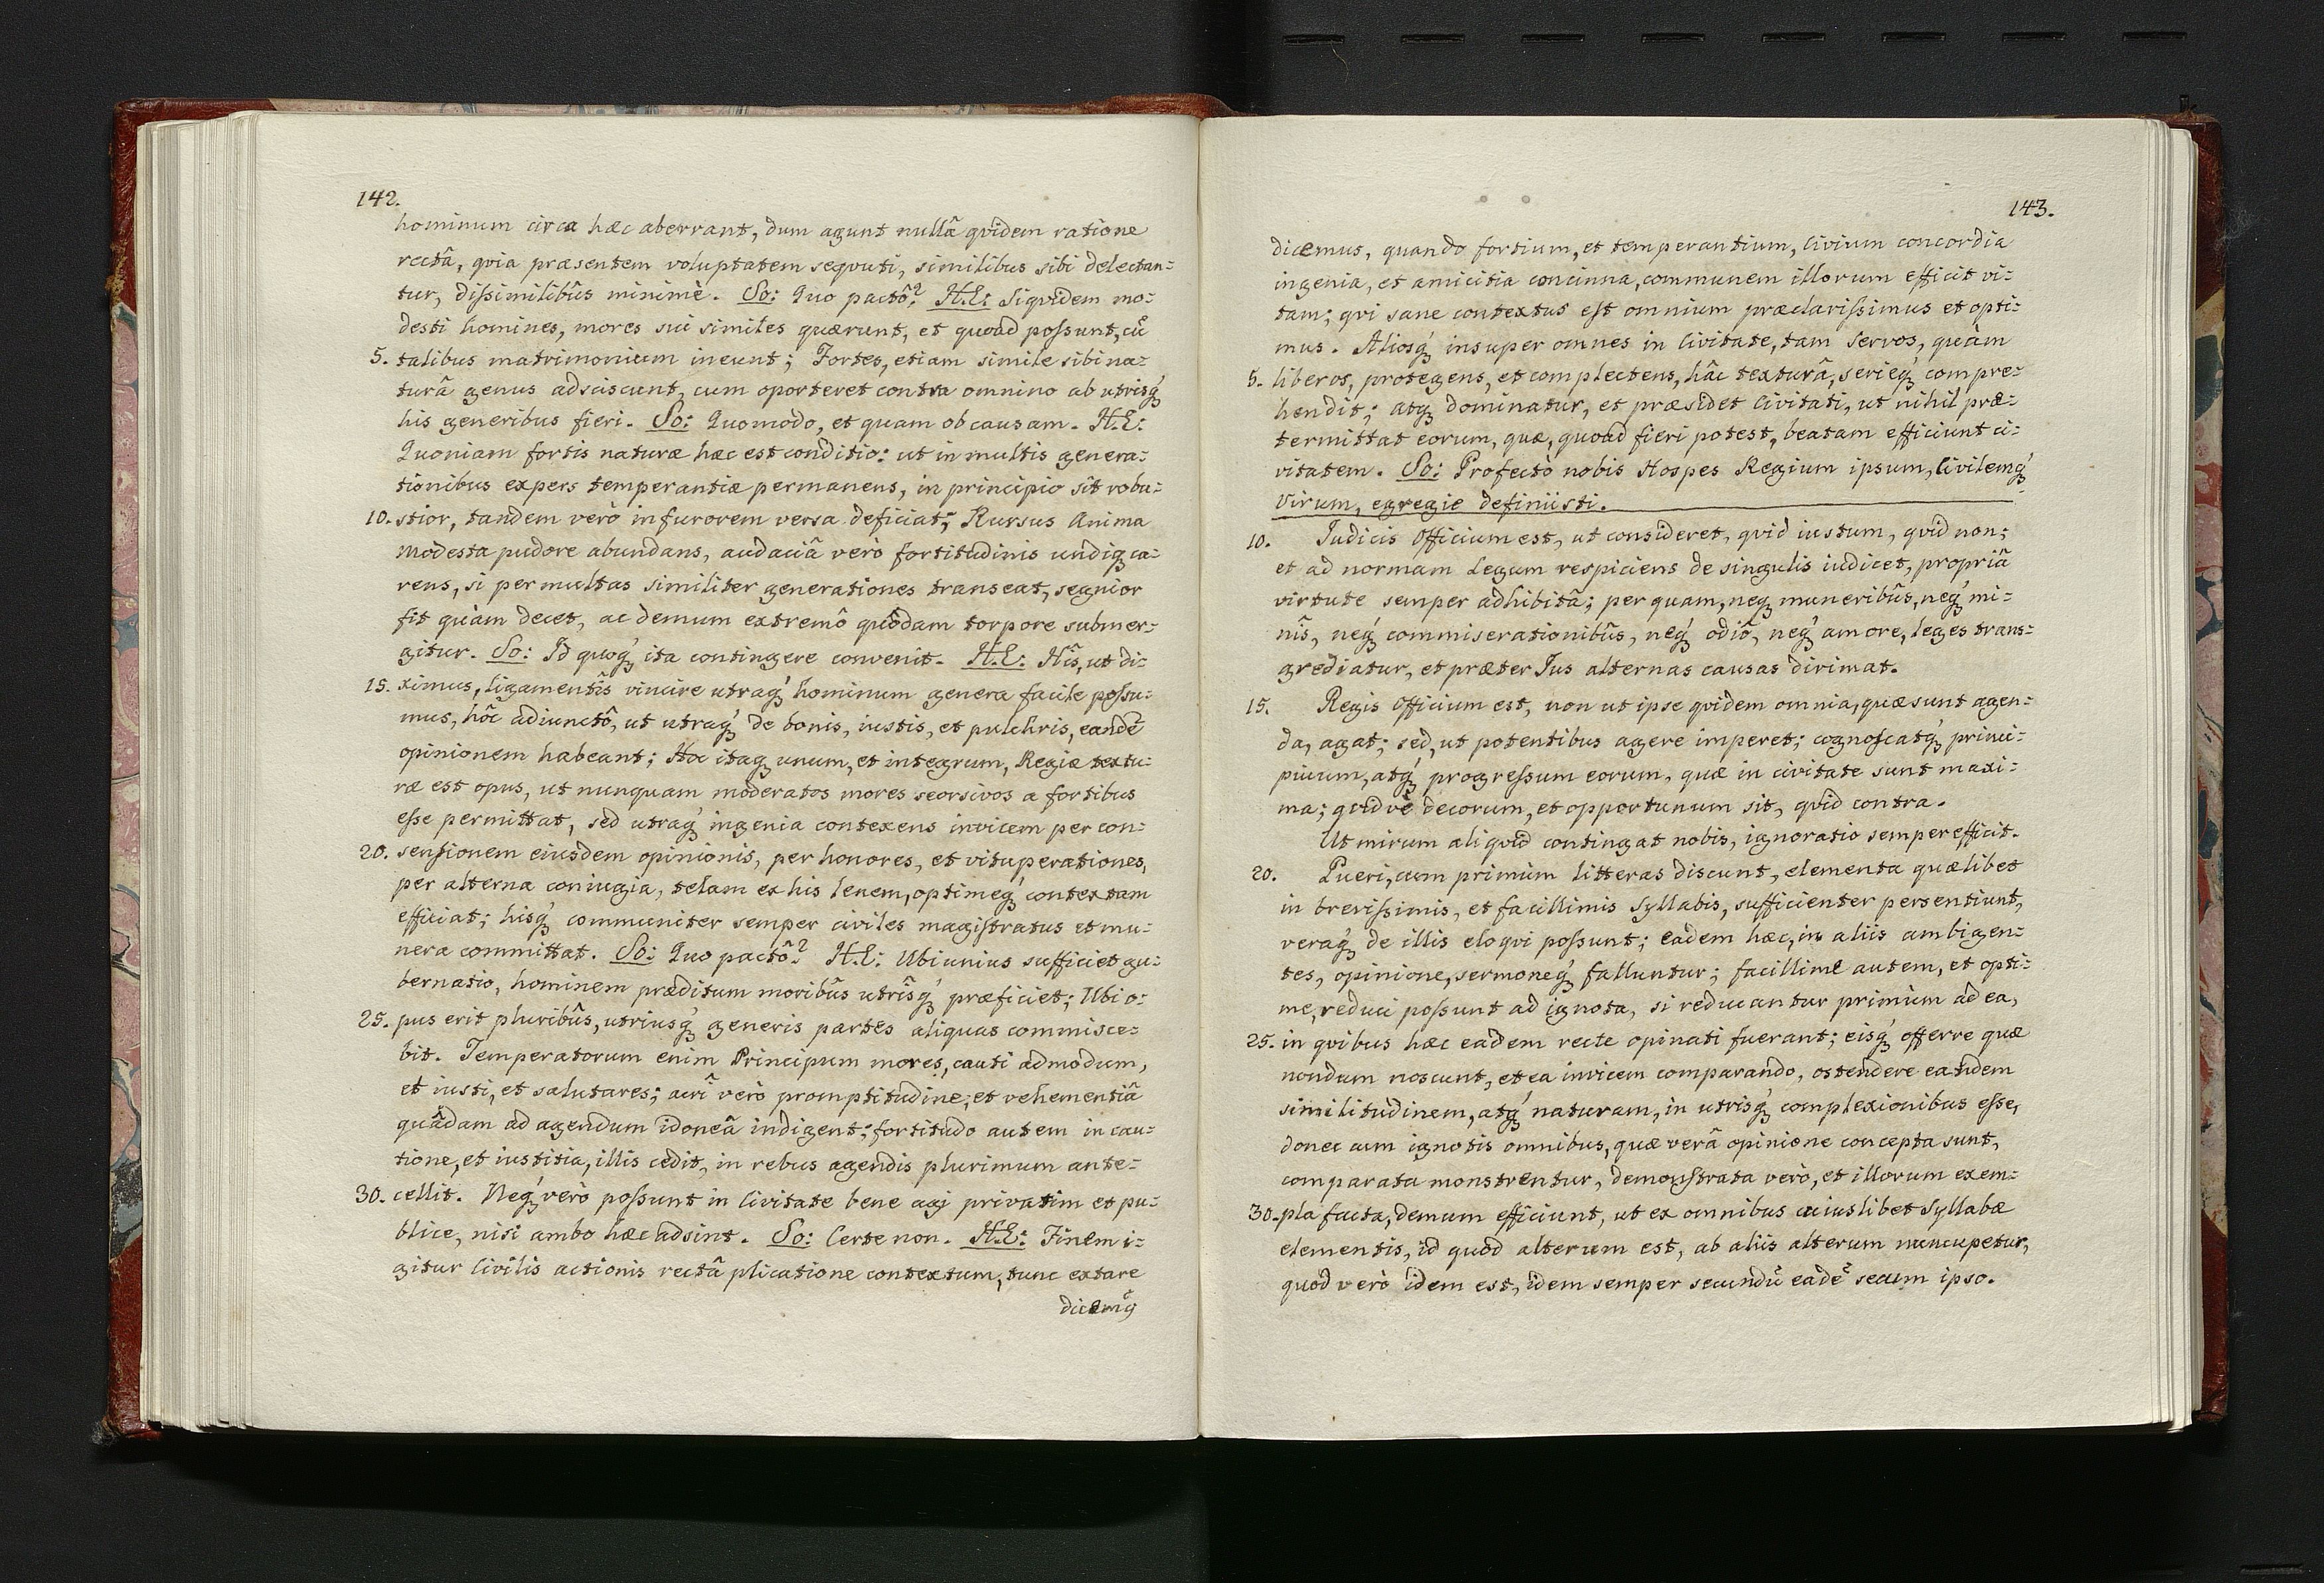 142.
hominum circa hæc aberrant, dum agunt nullâ qvidem ratione
rectâ, qvia præsentem voluptatem seqvuti, similibus sibi delectan=
tur, dißimilibûs minimè. So: Quo pactô? H.E: Siqvidem mo=
desti homines, mores sui similes quærunt, et quoad poßunt, cũ
5. talibus matrimonium ineunt; Fortes, etiam simile sibi na=
turâ genus adsciscunt, cum oporteret contra omnino ab utrisq́
his generibus fieri. So: Quomodo, et quam ob causam. H.E:
Quoniam fortis naturæ hæc est conditio: ut in multis genera=
tionibus expers temperantiæ permanens, in principio sit robu=
10. stior, tandem verò in furorem versa deficiat; Rursus Anima
Modesta pudore abundans, audaciâ verò fortitudinis undiq ca=
rens, si per multas similiter generationes transeat, segnior
fit quàm decet, ac demum extremô quôdam torpore submer=
gitur. So: Id quoq́ ita contingere convenit. H.E: Hîs, ut di=
15. ximus, ligamentîs vincire utraq́ hominum genera facile poßu=
mus, hôc adiunctô, ut utraq́ de bonis, iustis, et pulchris, eandẽ
opinionem habeant; Hoc itaq unum, et integrum, Regiæ textu=
ræ est opus, ut nunquam moderatos mores seorsivos a fortibus
eße permittat, sed utraq́ ingenia contexens invicem per con=
20. sensionem eiusdem opinionis, per honores, et vituperationes,
per alterna coniugia, telam ex his lenem, optimeq́ contextam
efficiat; hisq́ communiter semper civiles magistratus et mu=
nera committat. So: Quo pactô? H.E: Ubi unius sufficiet gu=
bernatio, hominem præditum moribûs utrîsq́ præficiet; Ubi o=
25. pus erit pluribûs, utriusq́ generis partes aliquas commisce=
bit. Temperatorum enim Principum mores, cauti admodum,
et iusti, et salutares; acrî verò promptitudine, et vehementiâ
quâdam ad agendum idoneâ indigent; fortitudo autem in cau=
tione, et iustitia, illis cedit, in rebus agendis plurimum ante=
30. cellit. Neq́ verò poßunt in Civitate bene agi privatim et pu=
blice, nisi ambo hæc adsint. So: Certe non. H.E: Finem i=
gitur Civilis actionis rectâ plicatione contextum, tunc extare
dicemg̃
143.
dicemus, quando fortium, et temperantium, Civium concordia
ingenia, et amicitia concinna, communem illorum efficit vi=
tam; qvi sane contextus est omnium præclarißimus et opti=
mus. Aliosq́ insuper omnes in Civitate, tam Servos, quàm
5. liberos, protegens, et complectens, hâc texturâ, serieq́ compre=
hendit; atq dominatur, et præsidet Civitati, ut nihil præ=
termittat eorum, quæ, quoad fieri potest, beatam efficiunt ci=
vitatem. So: Profectò nobis Hospes Regium ipsum, Civilemq́
Virum, egregie definiisti.
10. Iudicis Officium est, ut consideret, qvid iustum, qvid non;
et ad normam Legum respiciens de singulis iudicet, propriâ
virtute semper adhibitâ; per quam, neq muneribûs, neq́ mi=
nîs, neq́ commiserationibûs, neq́ odiô, neq́ amore, leges trans=
grediatur, et præter Ius alternas causas dirimat.
15. Regis Officium est, non ut ipse qvidem omnia, quæ sunt agen=
da, agat; sed, ut potentibus agere imperet; cognoscatq́ princi=
pium, atq́ progreßum eorum, quæ in civitate sunt maxi=
ma; qvidvè decorum, et opportunum sit, qvid contra.
Ut mirum aliqvid contingat nobis, ignoratio semper efficit.
20. Pueri, cum primùm litteras discunt, elementa quælibet
in brevißimis, et facillimis Syllabis, sufficienter persentiunt,
veraq́ de illis eloqvi poßunt; eadem hæc, in aliis ambigen=
tes, opinione, sermoneq́ falluntur; facillime autem, et opti=
me, reduci poßunt ad ignota, si reducantur primùm ad ea,
25. in qvibus hæc eadem recte opinati fuerant; eisq́ offerre quæ
nondum noscunt, et ea invicem comparando, ostendere eandem
similitudinem, atq́ naturam, in utrisq́ complexionibus eße,
donec cum ignotis omnibus, quæ verâ opinione concepta sunt,
comparata monstrentur, demonstrata verò, et illorum exem=
30. pla facta, demum efficiunt, ut ex omnibus cuiuslibet Syllabæ
elementis, id quod alterum est, ab aliis alterum nuncupetur,
quod verò idem est, idem semper secundũ eadẽ secum ipso.